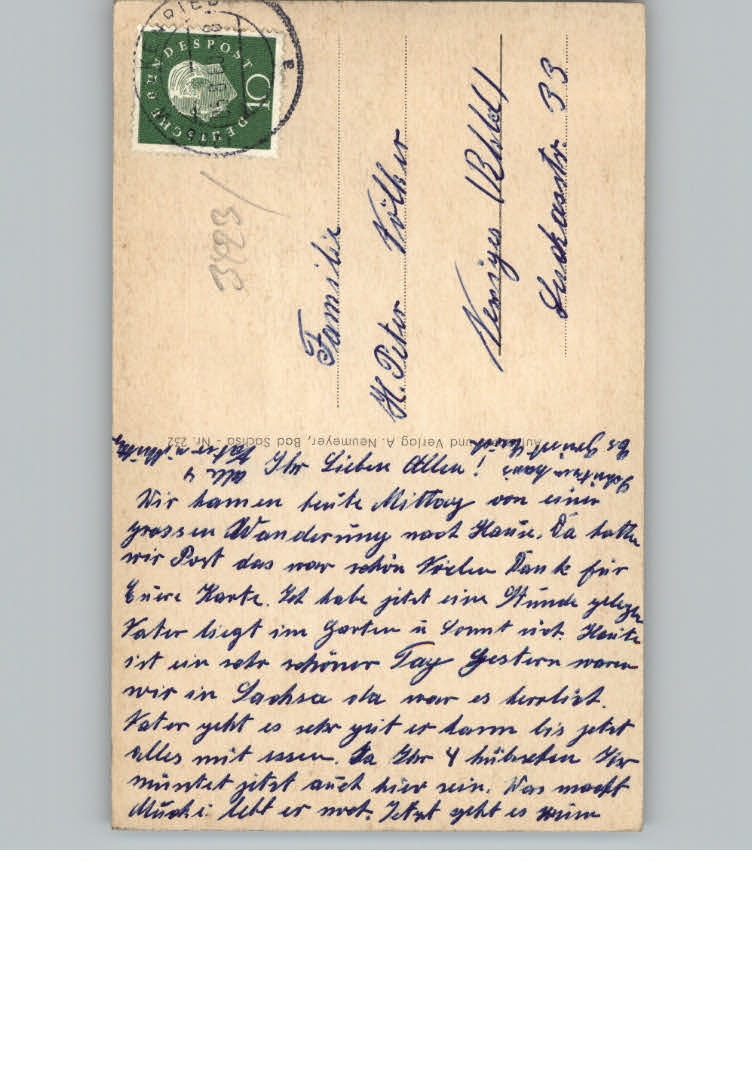 DEUTSCHE BUNDESPOST
10
3423
Familie
H. Peter Völker
Neviges (Rhld)
Lukasstr. 33
Aufnahme und Verlag A. Neumeyer, Bad Sachsa - Nr. 232
Ihr Lieben Allen!
Wir kamen heute Mittag von einer
grossen Wanderung nach Hause. Da hatten
wir Post das war schön Vielen Dank für
Euere Karte. Ich habe jetzt eine Stunde gelegen
Vater liegt im Garten u sonnt sich. Heute
ist ein sehr schöner Tag Gestern waren
wir in Sachsa da war es herrlich.
Vater geht es sehr gut er kann bis jetzt
alles mit essen. Ja Ihr 4 hübschen Ihr
müsstet jetzt auch hier sein. Was macht
Mucki lebt er noch. Jetzt geht es zum
Schützenhaus
Es Grüsst Euch
alle 4
Vater u Mutter